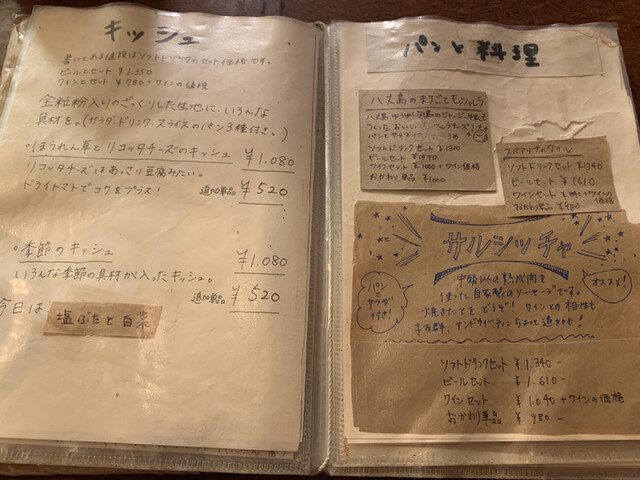 キッシュ
書いてある値段はソフトドリンクのセット価格です。
ビールとセット ¥1.350
ワインとセット ¥980+ワインの値段
全粒粉入りのざっくりした生地に、いろんな
具材を。(サラダ、ドリンク、スライスのパン3種付き。)
○ほうれん草とリコッタチーズのキッシュ ¥1.080
リコッタチーズはあっさり豆腐みたい。
ドライトマトでコクをプラス! 追加単品 ¥520
○季節のキッシュ ¥1.080
いろんな季節の具材が入ったキッシュ。
追加単品 ¥520
今日は 塩ぶたと白菜
パンと料理
八丈島のまるごとモッツァレラ
八丈島
つくったおいしい
パンとサラダ
ソフトドリンクセット
ビールセット ¥1970
ワインセット ワイン価格
おかわり 単品 ¥1000
ソフトドリンクセット ¥1340
ビールセット ¥1610
ワインセット +ワインの
価格
おかわり単品
サルシッチャ
オススメ!
パン
サラダ
付き!
熟成肉を
使った自家製のソーセージです。
焼きたてをどうぞ! ワインとの相性も
追加も!
ソフトドリンクセット ¥1.340-
ビールセット ¥1.610-
ワインセット ¥1.040+ワインの価格
おかわり単品 ¥980-